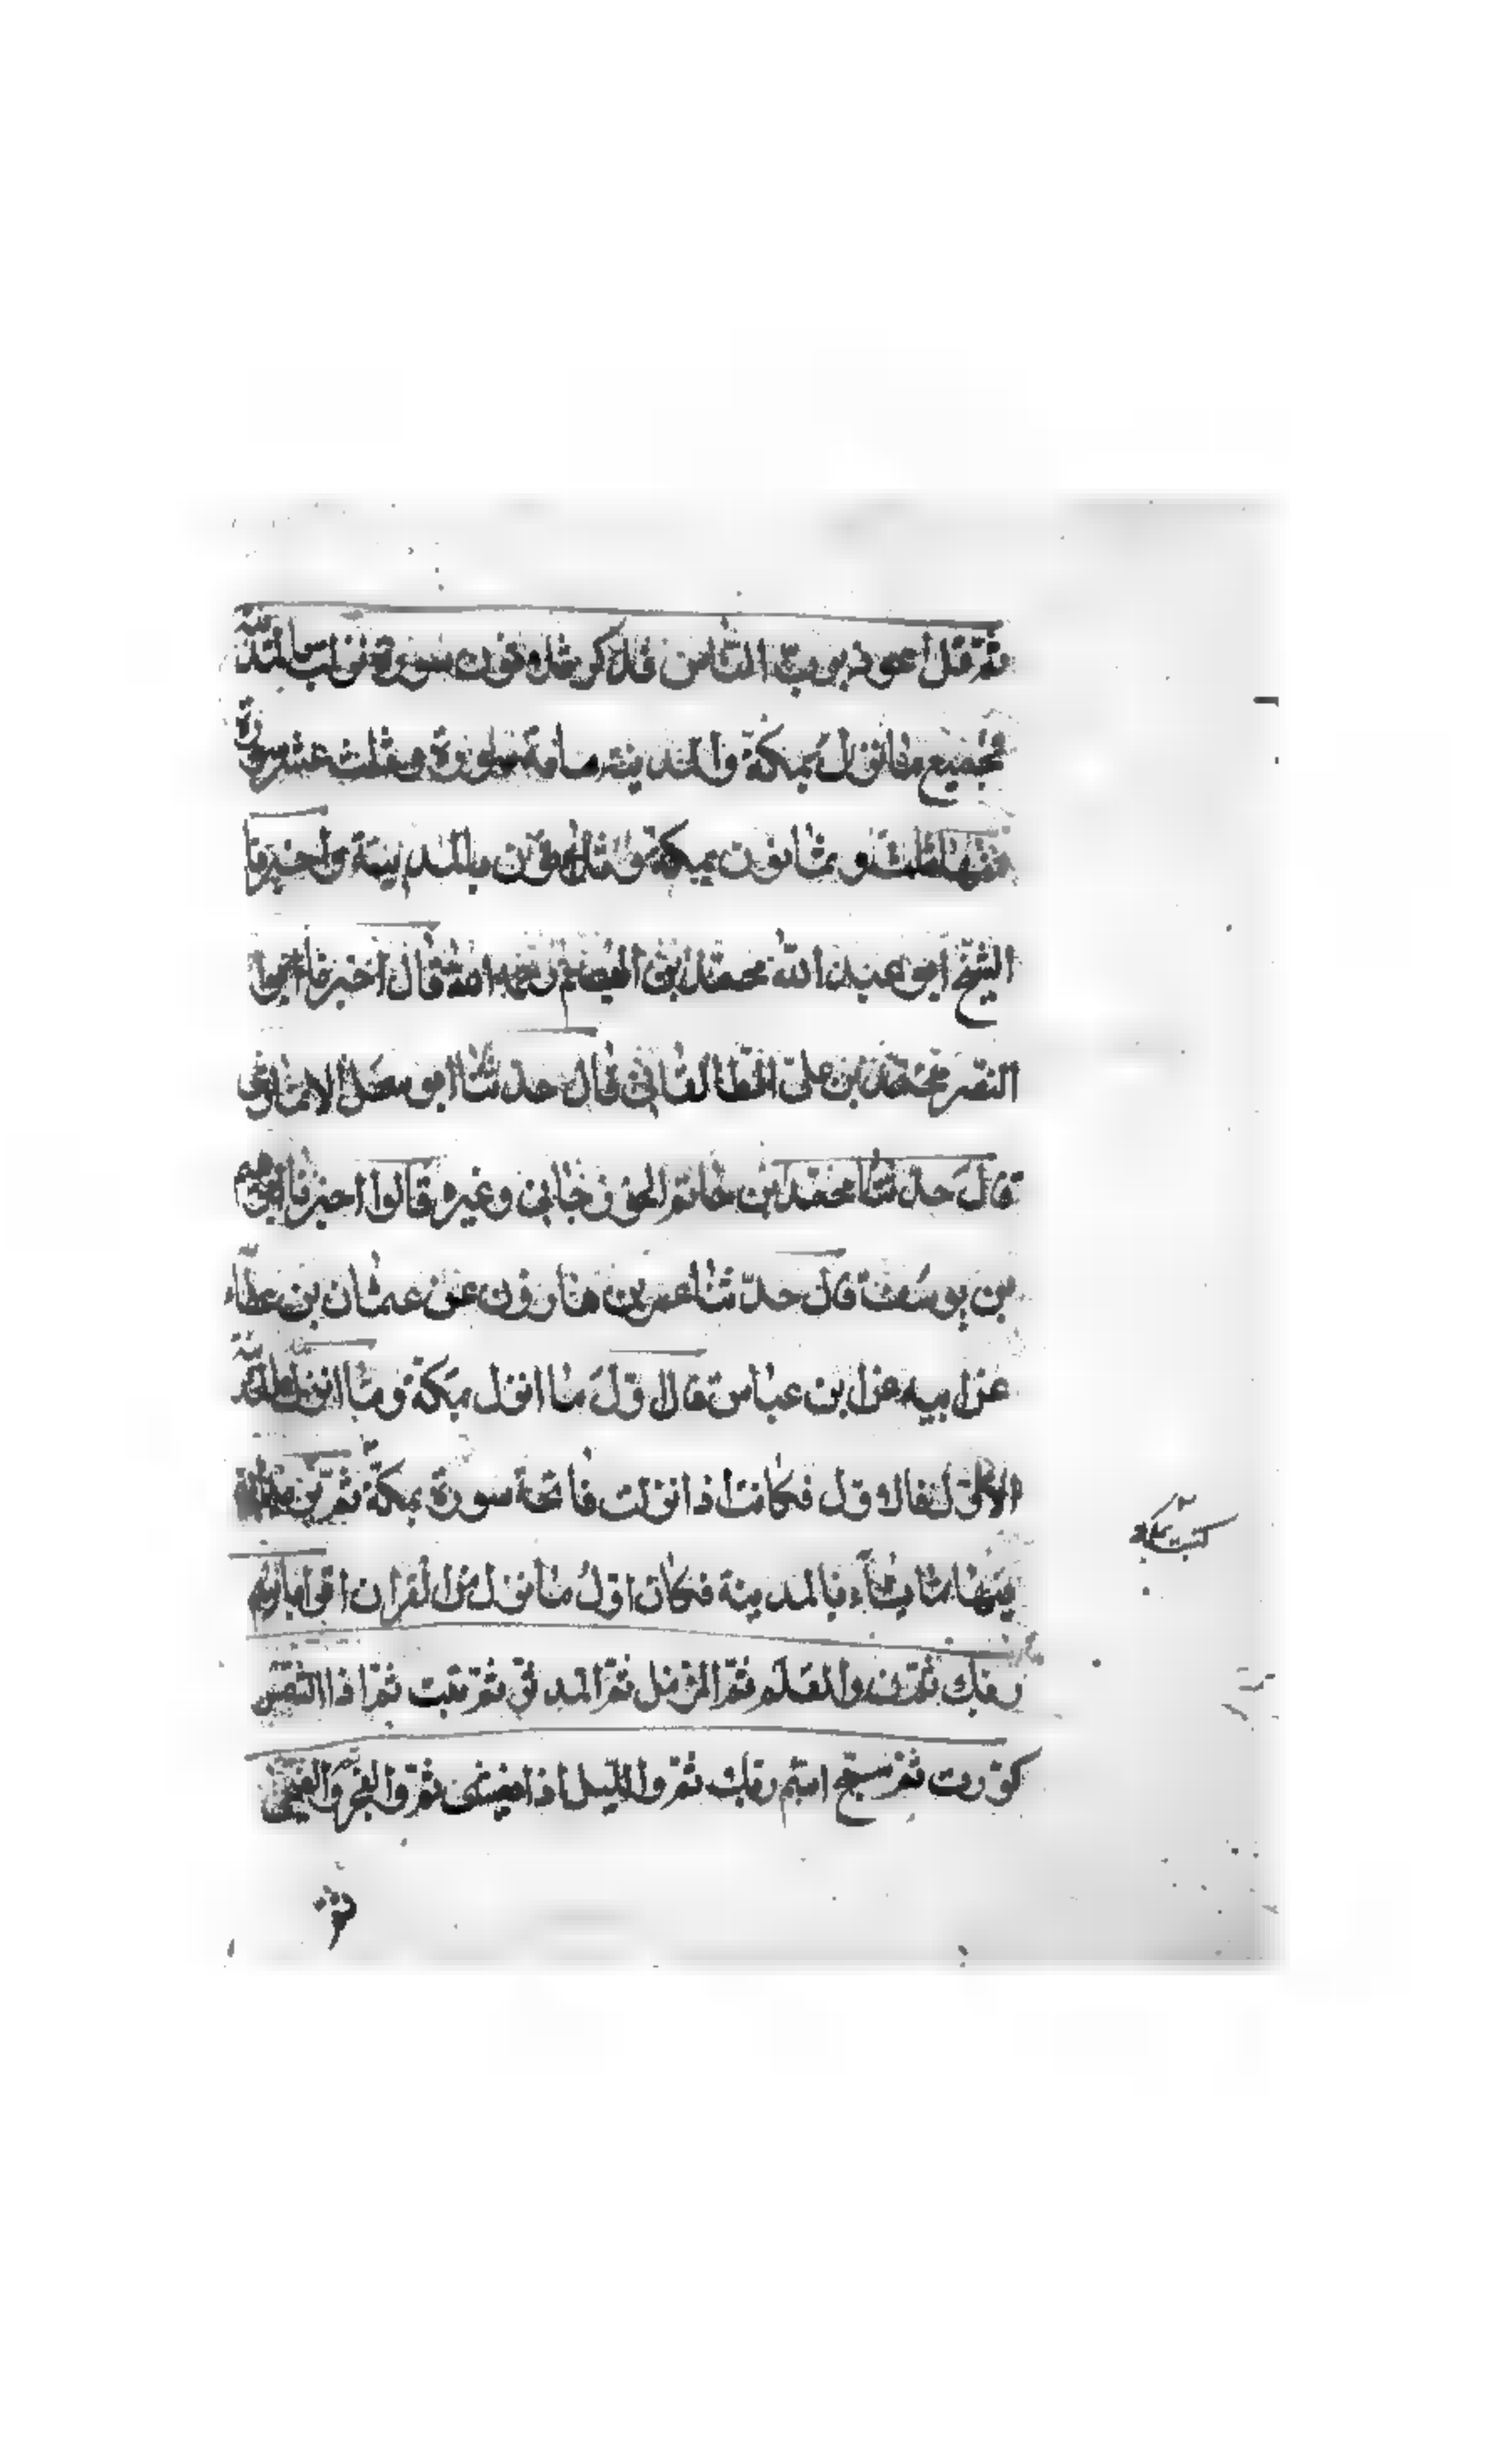 ثم قل أعوذ برب الناس فذلك ثلاثون سورة نزلت بالمدينة
فجميع ما نزل بمكة والمدينة مائة سورة وثلث عشر سورة
منها ثلث وثمانون بمكة وثلاثون بالمدينة واخبرنا
الشيخ ابو عبد الله محمد بن الهيصم رحمه الله قال اخبرنا ابو
النضر محمد بن علي الطالقاني قال حدثنا ابو سهل الانماري
قال حدثنا محمد بن حاتم الجوزجاني وغيره قالوا اخبرنا
بن يوسف قال حدثنا عمر بن هارون عن عثمان بن عطاء
عن ابيه عن ابن عباس قال اول ما انزل بمكة وما انزل بالمدينة
الاول فالاول فكانت اذا نزلت فاتحة سورة بمكة ثم يزيد الله
فيها ما يشاء بالمدينة فكان اول ما نزل من القران اقرا باسم
ربك ثم ن والقلم ثم المزمل ثم المدثر ثم تبت ثم اذا الشمس
كورت ثم سبح اسم ربك ثم والليل اذا يغشى ثم والفجر والضحى
ثم